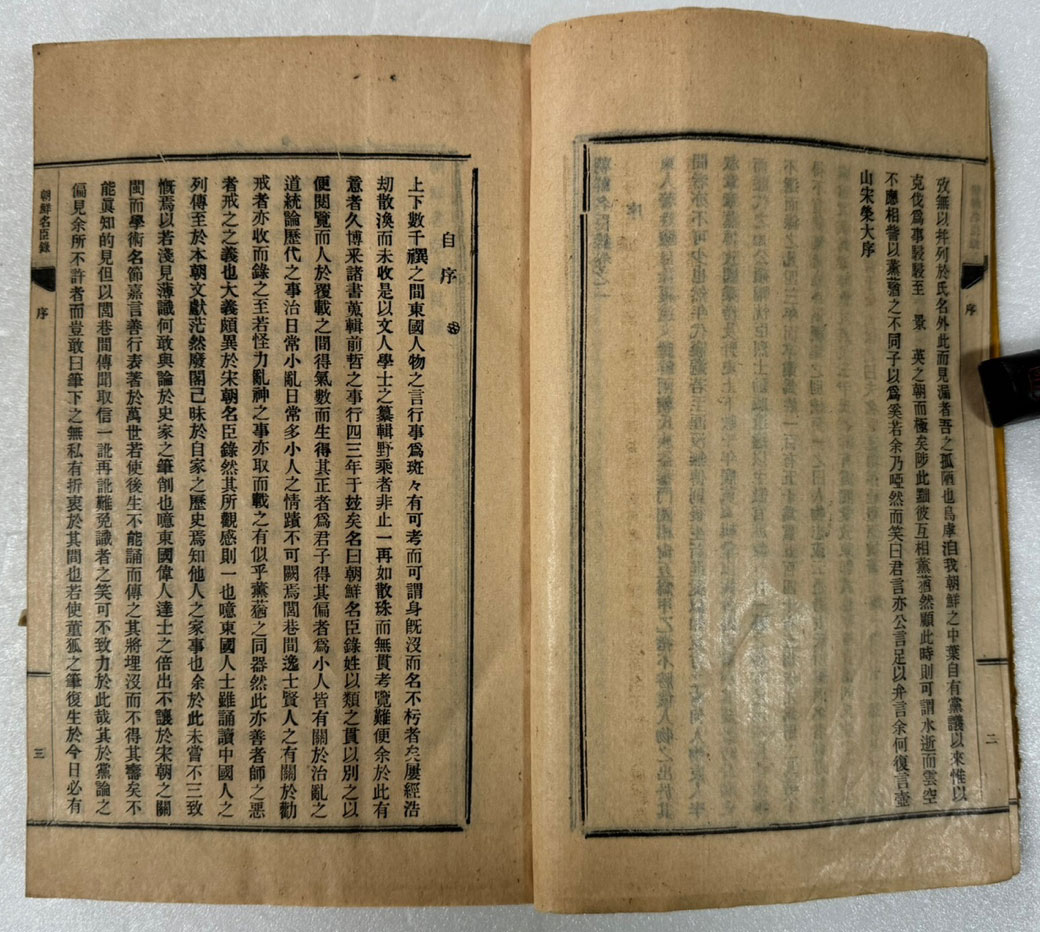 攷無以幷列於氏名外此而見漏者吾之孤陋也烏虖洎我朝鮮之中葉自有黨議以來惟以
克伐爲事駸駸至 景 英之朝而極矣陟此黜彼互相薰蕕然顧此時則可謂水逝而雲空
不應相訾以薰蕕之不同子以爲奚若余乃啞然而笑曰君言亦公言足以弁言余何復言壺
山宋榮大序
序
二
自序
上下數千禩之間東國人物之言行事爲斑々有可考而可謂身旣沒而名不朽者矣屢經浩
刧散渙而未收是以文人學士之纂輯野乘者非止一再如散珠而無貫考覽難便余於此有
意者久博采諸書蒐輯前哲之事行四三年于玆矣名曰朝鮮名臣錄姓以類之貫以別之以
便閱覽而人於覆載之間得氣數而生得其正者爲君子得其偏者爲小人皆有關於治亂之
道統論歷代之事治日常小亂日常多小人之情蹟不可闕焉閭巷間逸士賢人之有關於勸
戒者亦收而錄之至若怪力亂神之事亦取而載之有似乎薰蕕之同器然此亦善者師之惡
者戒之之義也大義頗異於宋朝名臣錄然其所觀感則一也噫東國人士雖誦讀中國人之
列傳至於本朝文獻茫然廢閣己昧於自家之歷史焉知他人之家事也余於此未嘗不三致
慨焉以若淺見薄識何敢與論於史家之筆削也噫東國偉人達士之倍出不讓於宋朝之關
閩而學術名節嘉言善行表著於萬世若使後生不能誦而傳之其將埋沒而不得其審矣不
能眞知的見但以閭巷間傳聞取信一訛再訛難免識者之笑可不致力於此哉其於黨論之
偏見余所不許者而豈敢曰筆下之無私有折衷於其間也若使董狐之筆復生於今日必有
朝鮮名臣錄
序
三